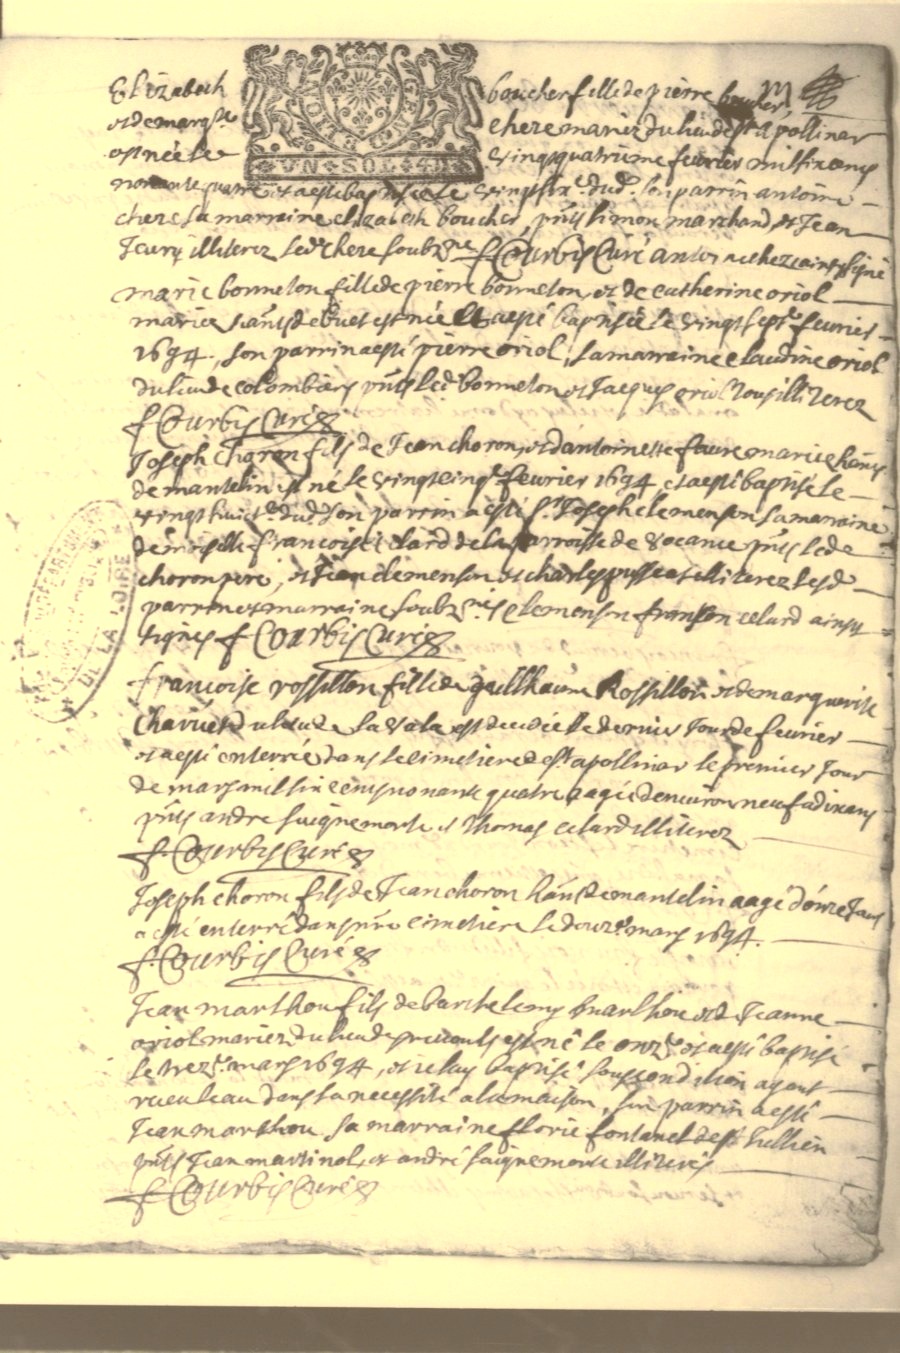 Elizabeth boucher fille de pierre boucher,
et de marg.te chere mariez du lieu de st Apollinar
est née le vingt quatrieme fevrier mil six cens
nonante quatre et a esté baptisée le vingt six.e dud. son parrin antoine
chere sa marraine elizabeth boucher, pnts simon marchand et Jean
illiterez led. chere soubz.ne f Courbis Curé antoine chere ainsy signé
marie bonneton fille de pierre bonneton, et de catherine oriol
mariez est née et a esté baptisée le vingt sept.e fevrier
1694, son parrin a esté pierre oriol, sa marraine claudine oriol
du lieu de colombier pnts led. bonneton et Jacques oriol tous illiterez
f Courbis Curé
Joseph choron fils de Jean choron, et d'antoinette faure mariez hants
de mantelin est né le vingt cinq.e fevrier 1694 et a esté baptisé le
vingt huict.e dud. son parrin a esté sr Joseph clemenson sa marraine
demoiselle francoise celard de la parroisse de vocance pnts led.
choron pere, et Jean clemenson et charles illiterez lesd.
parrin et marraine soubz.nés clemenson franson celard ainsy
signés f Courbis Curé
francoise rossillon fille de guilhaume Rossillon et de marguerite
Charvet du lieu de la vala est decedée le dernier Jour de fevrier
et a esté enterrée dans le cimetiere de st apollinar le premier Jour
de mars mil six cens nonante quatre, agée d'environ neuf a dix ans
pnts andre saignemorte et Thomas celard illiterez
f Courbis Curé
Joseph choron fils de Jean choron hant de mantelin aagé d'onze Jours
a esté enterré dans nre cimetiere le douz.e mars 1694.
f Courbis Curé
Jean marthou fils de barthelemy marthou et de Jeanne
oriol mariez du lieu de est né le onz.e et a esté baptisé
le trez.e mars 1694, et icelluy baptisé soubz condition ayant
receu leau dans la necessité a la maison, son parrin a esté
Jean marthou sa marraine florie fontanel de st Jullien
pnts Jean martinol, et andré saignemorte illiterés
f Courbis Curé
DE LA LOIRE